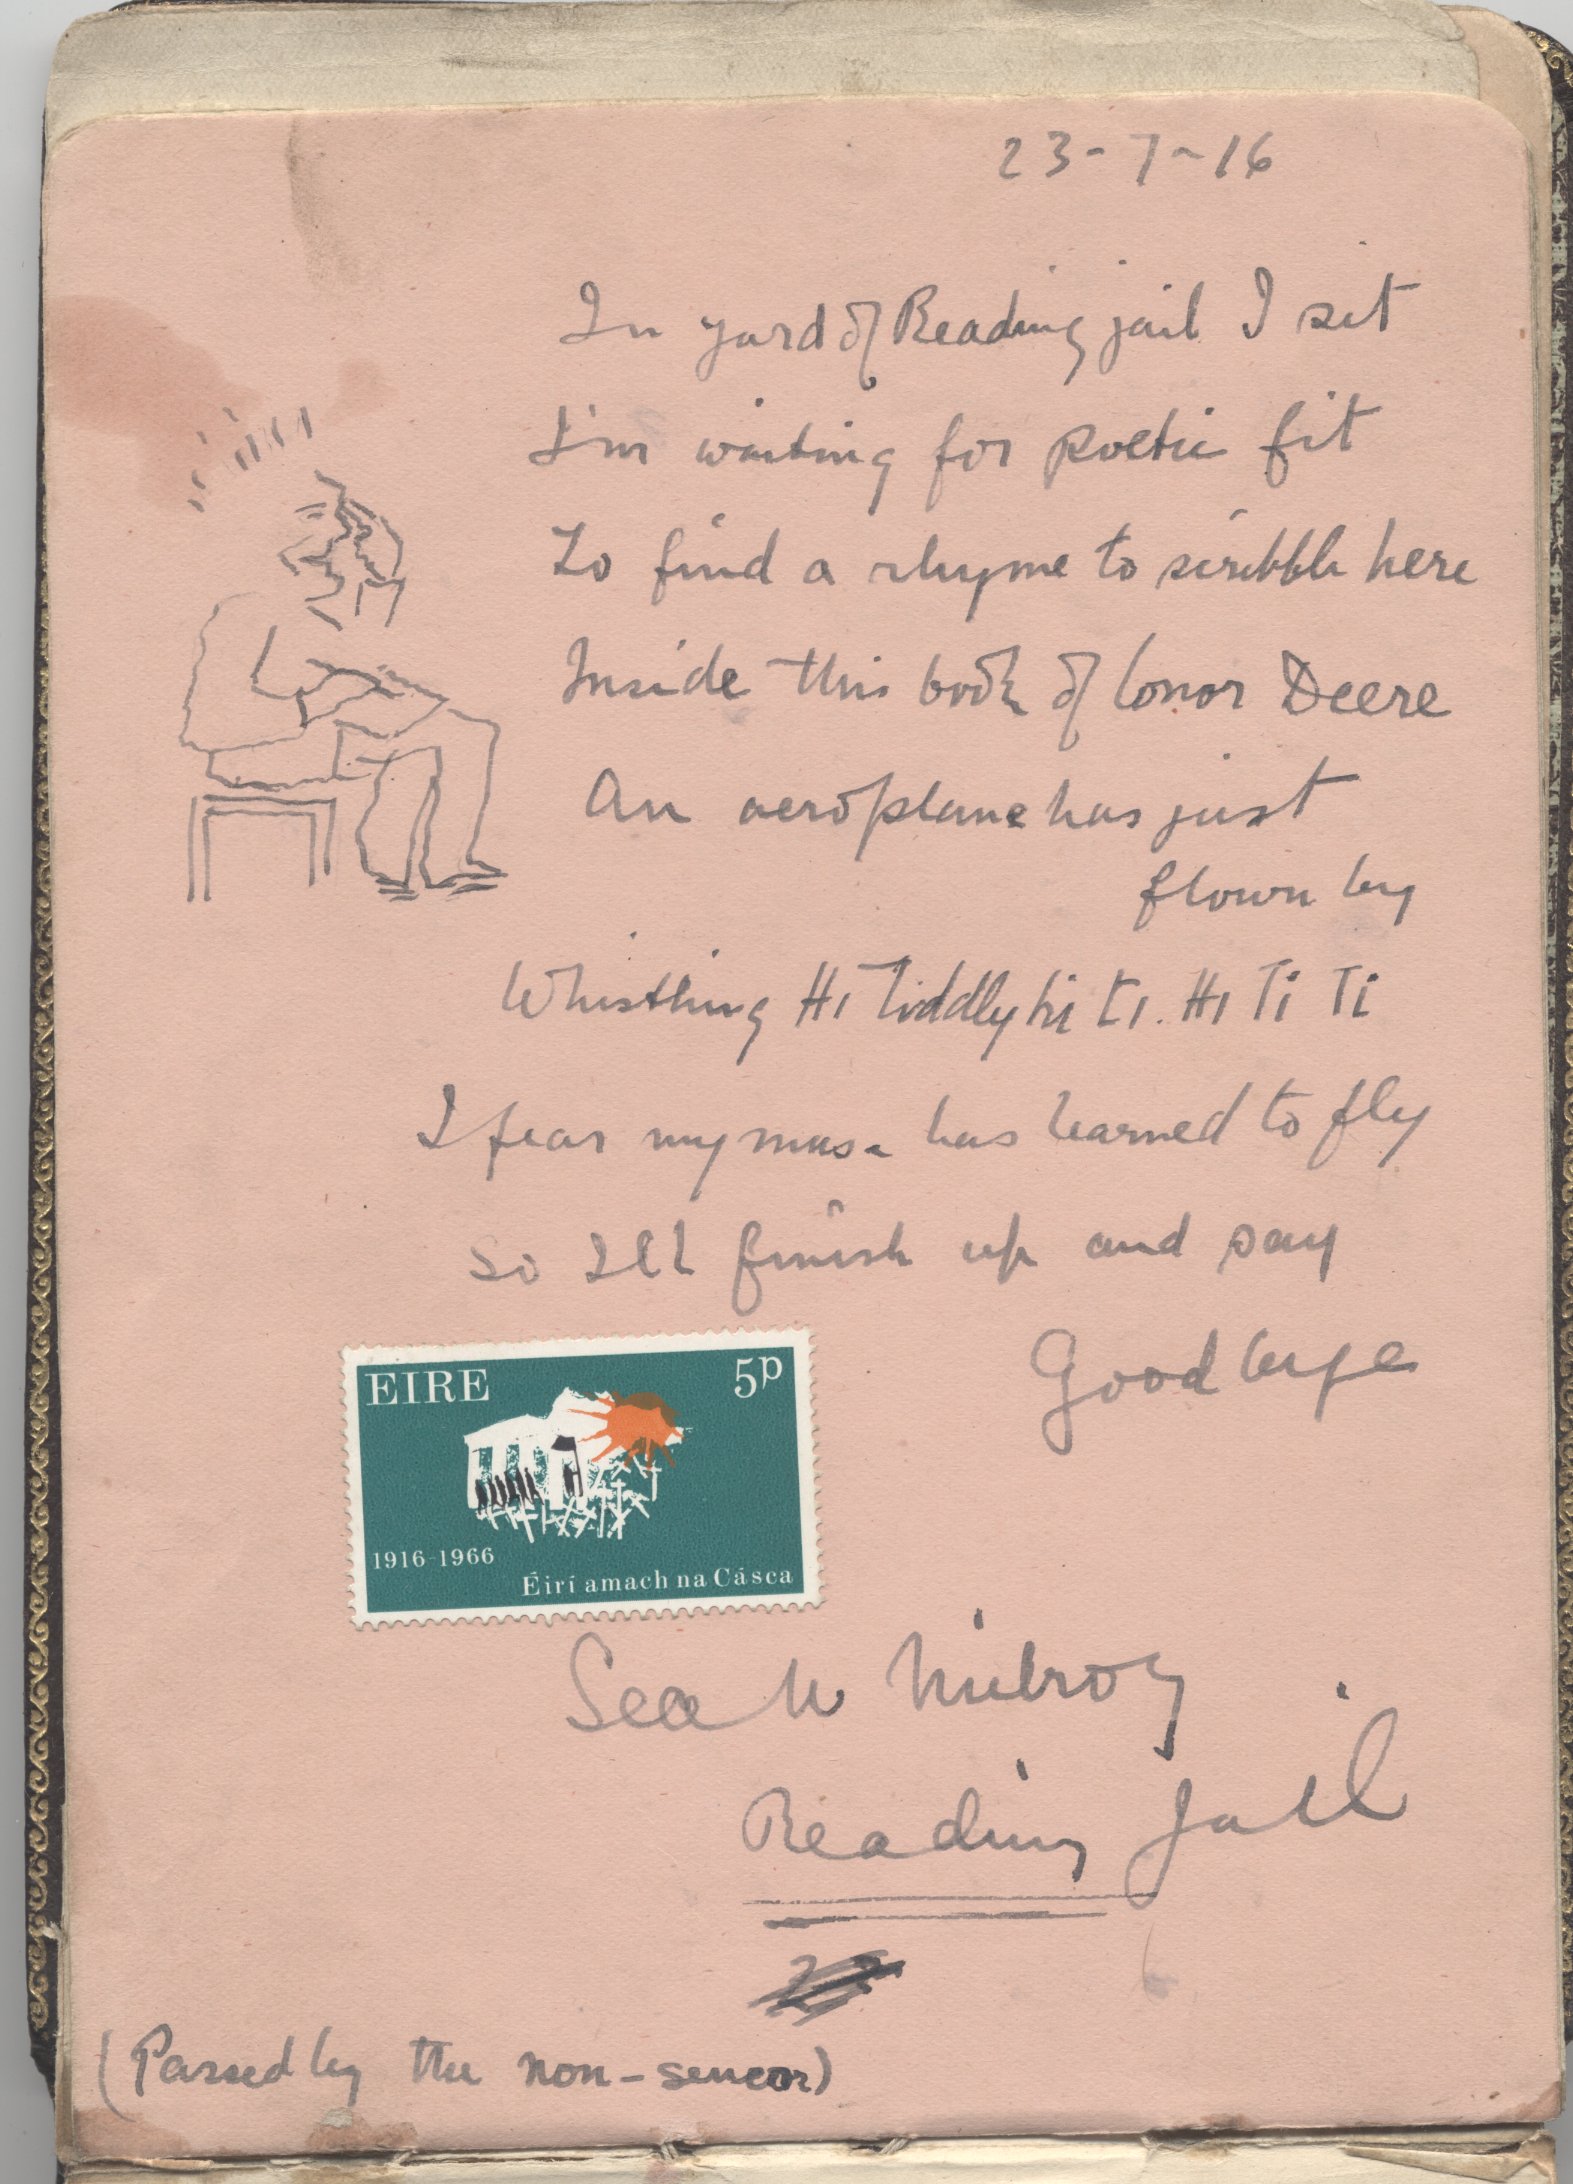 23-7-16
In yard of Reading jail I sit
I'm waiting for poetic fit
To find a rhyme to scribble here
Inside this book of Conor Deere
An aeroplane has just
flown by
Whistling Hi Tiddly hi ti. Hi Ti Ti
I fear my muse has learned to fly
So I'll finish up and say
Goodbye
EIRE 5p
1916-1966
Éirí amach na Cásca
Sean Milroy
Reading Jail
(Passed by the non-sencor)